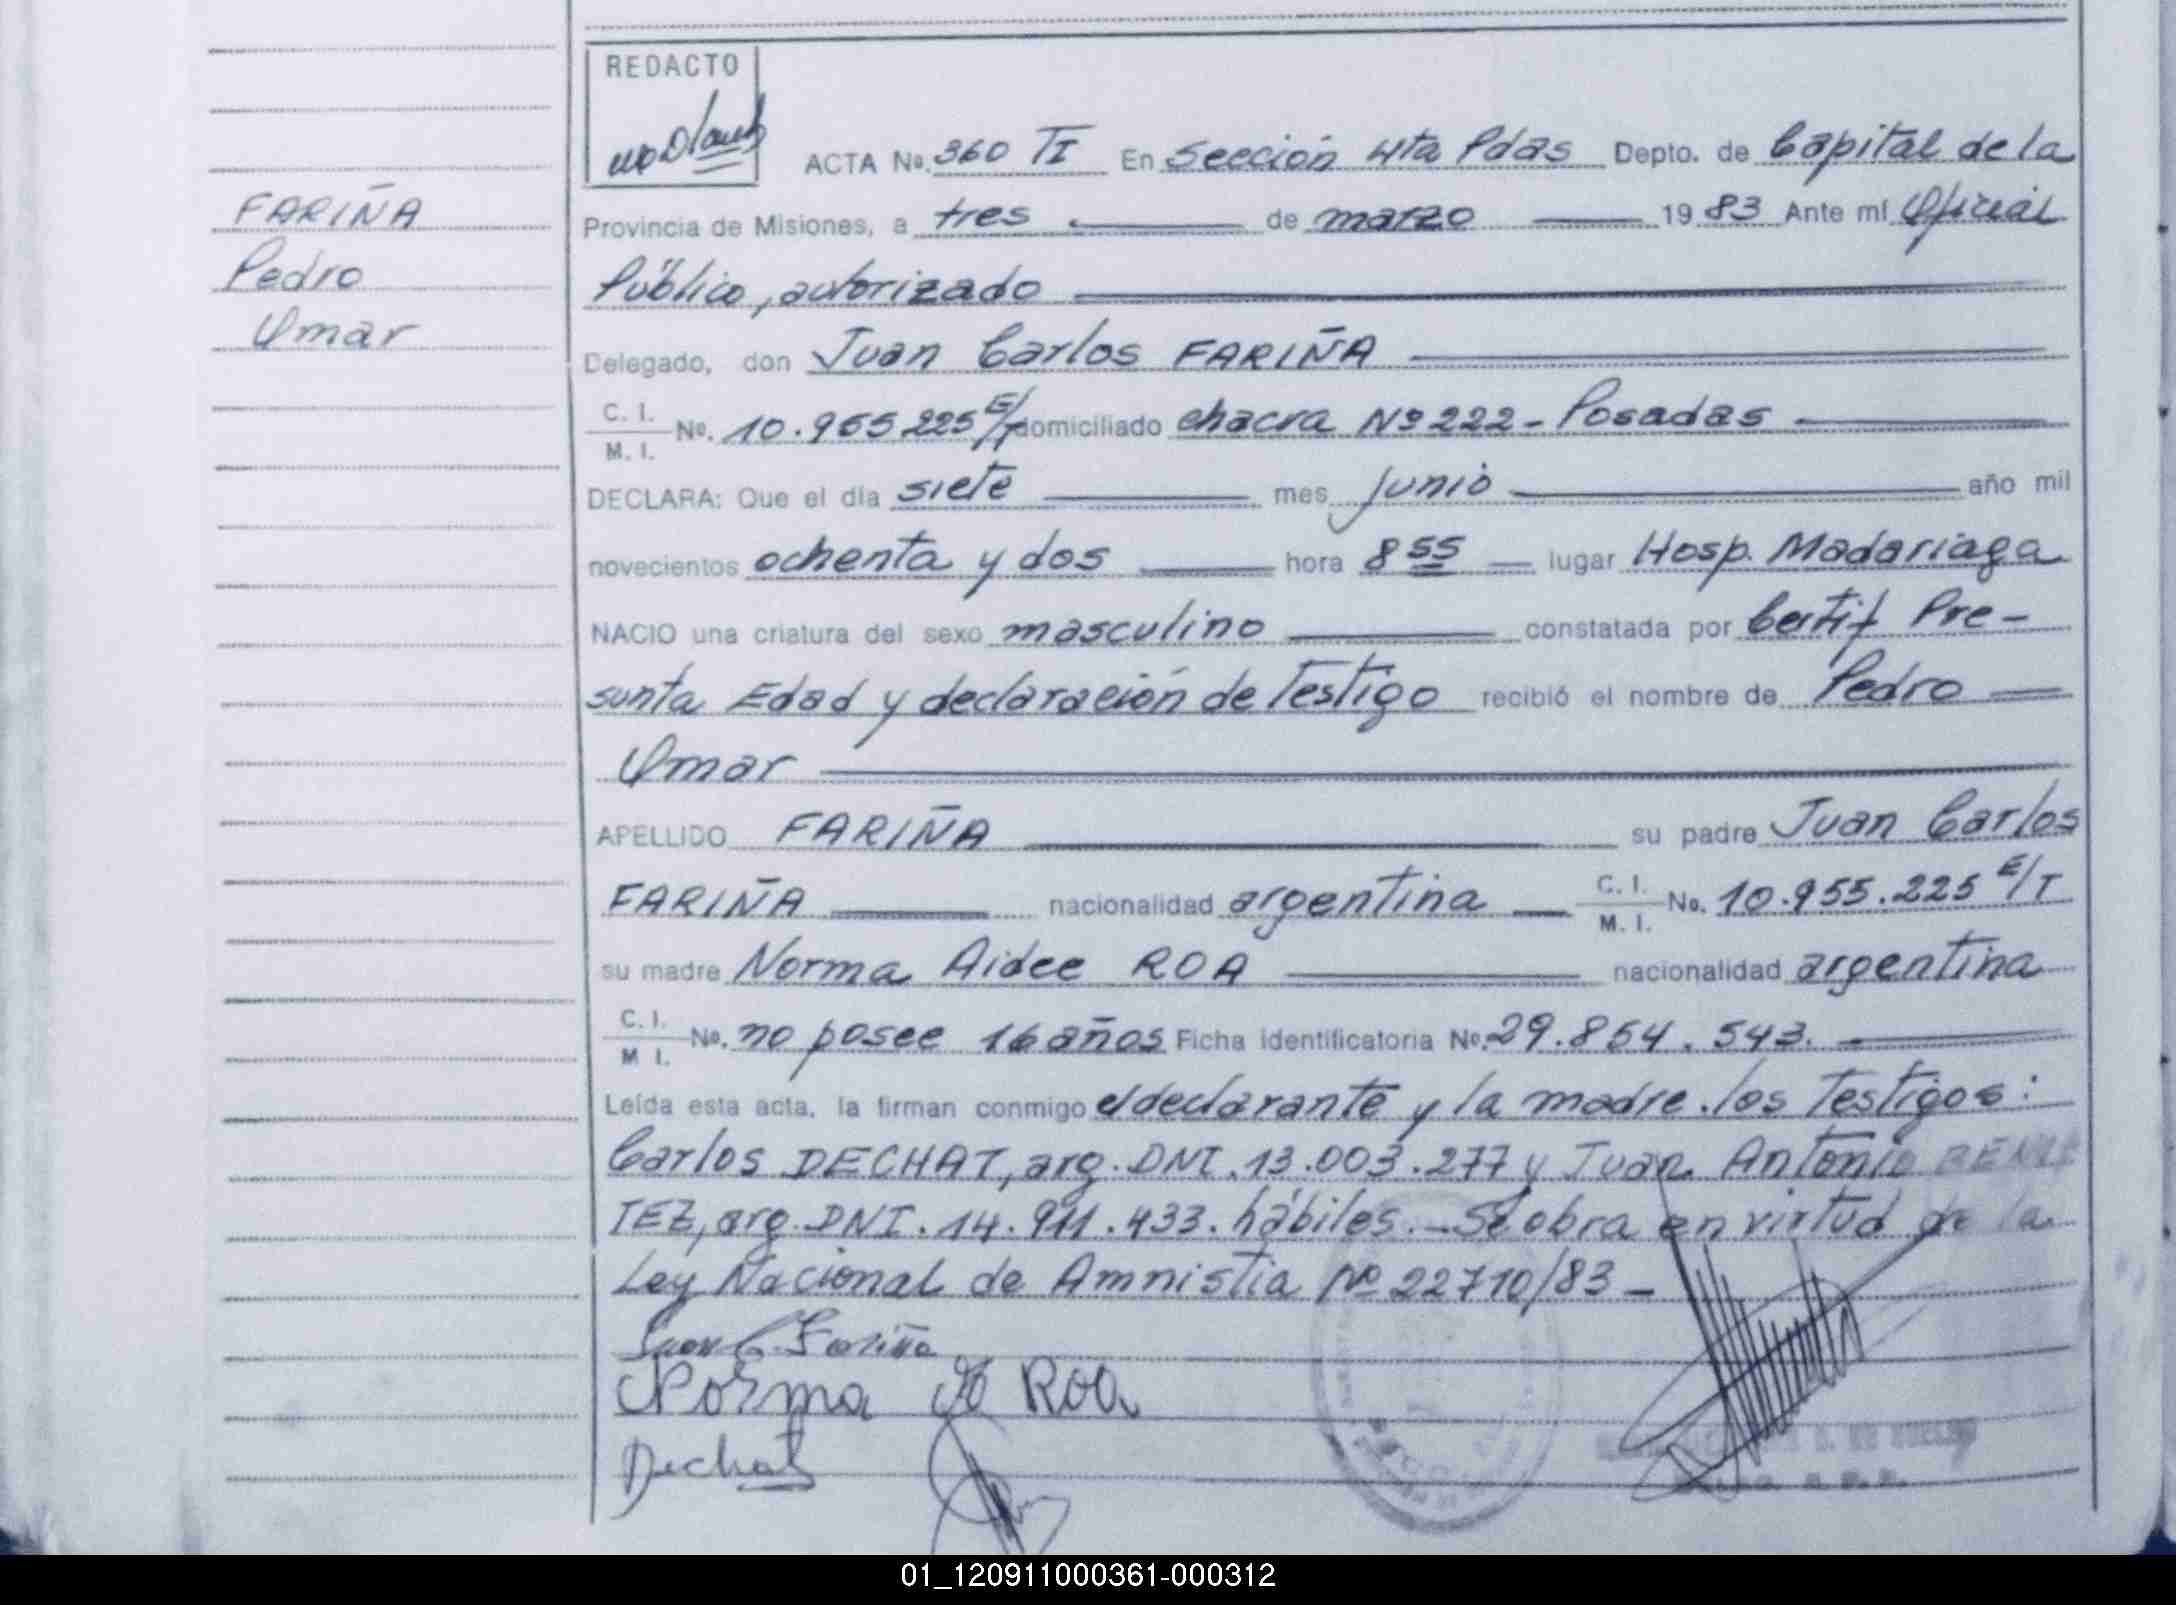 REDACTO
ACTA No. 360 TI En Sección 4ta Pdas Depto. de Capital de la
FARIÑA
Provincia de Misiones, a tres de marzo 19 83 Ante mí Oficial
Pedro
Público, autorizado
Omar
Delegado, don Juan Carlos FARIÑA
C. I.
M. I.
No. 10.955.225 E/T domiciliado chacra Nº 222 - Posadas
DECLARA: Que el día siete mes junio año mil
novecientos ochenta y dos hora 8 55 lugar Hosp. Madariaga
NACIO una criatura del sexo masculino constatada por Certif Pre-
sunta Edad y declaración de Testigo recibió el nombre de Pedro
Omar
APELLIDO FARIÑA su padre Juan Carlos
FARIÑA nacionalidad argentina C. I. M. I. No. 10.955.225 E/T
su madre Norma Aidee ROA nacionalidad argentina
C. I.
M I.
No. no posee 16 años Ficha identificatoria No. 29.854.543.
Leída esta acta, la firman conmigo el declarante y la madre. los Testigos:
Carlos DECHAT, arg. DNI. 13.003.277 y Juan Antonio BENI
TEZ, arg. DNI. 14.911.433. hábiles. - Se obra en virtud de la
Ley Nacional de Amnistia Nº 22710/83 -
Juan C. Fariña
Norma A Roa
Dechat
01_120911000361-000312